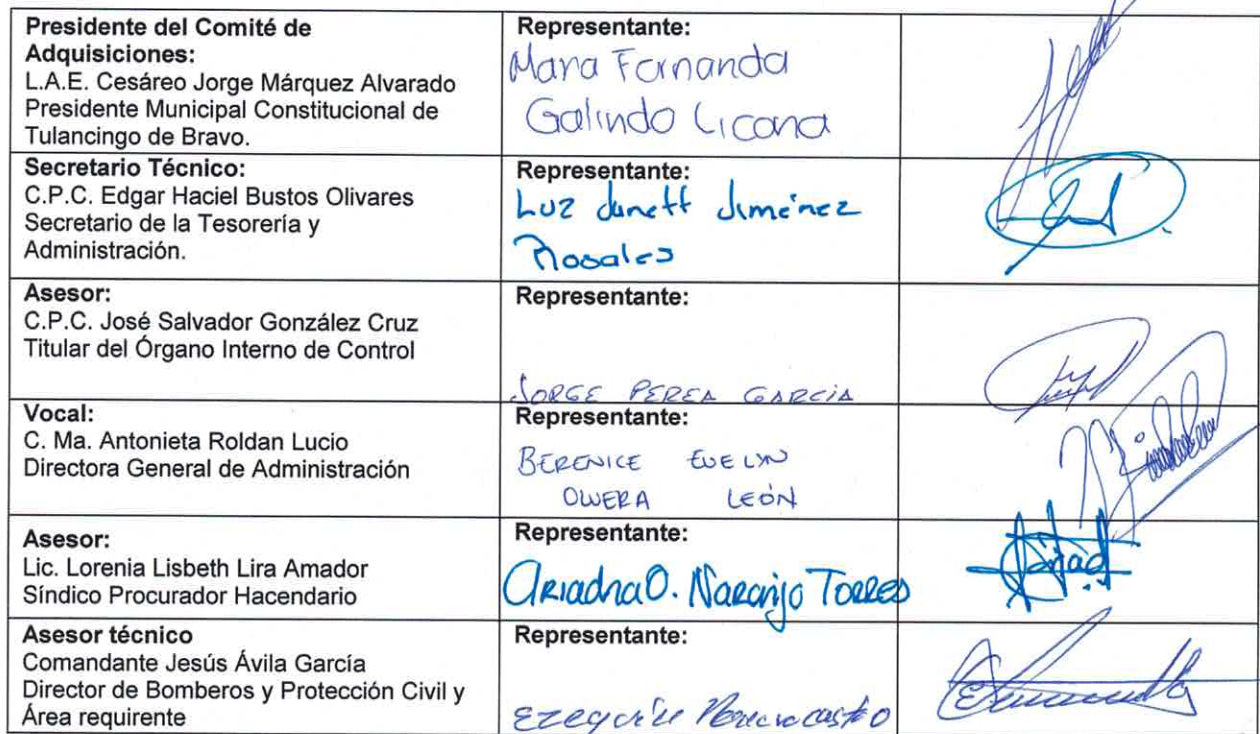 Presidente del Comité de
Adquisiciones:
L.A.E. Cesáreo Jorge Márquez Alvarado
Presidente Municipal Constitucional de
Tulancingo de Bravo.
Representante:
Maria Fernanda
Galindo Licona
Secretario Técnico:
C.P.C. Edgar Haciel Bustos Olivares
Secretario de la Tesorería y
Administración.
Representante:
Luz Janett Jiménez
Rosales
Asesor:
C.P.C. José Salvador González Cruz
Titular del Órgano Interno de Control
Representante:
JORGE PEREA GARCIA
Vocal:
C. Ma. Antonieta Roldan Lucio
Directora General de Administración
Representante:
BERENICE EVELYN
OLVERA LEÓN
Asesor:
Lic. Lorenia Lisbeth Lira Amador
Síndico Procurador Hacendario
Representante:
Ariadna O. Naranjo Torres
Asesor técnico
Comandante Jesús Ávila García
Director de Bomberos y Protección Civil y
Área requirente
Representante: